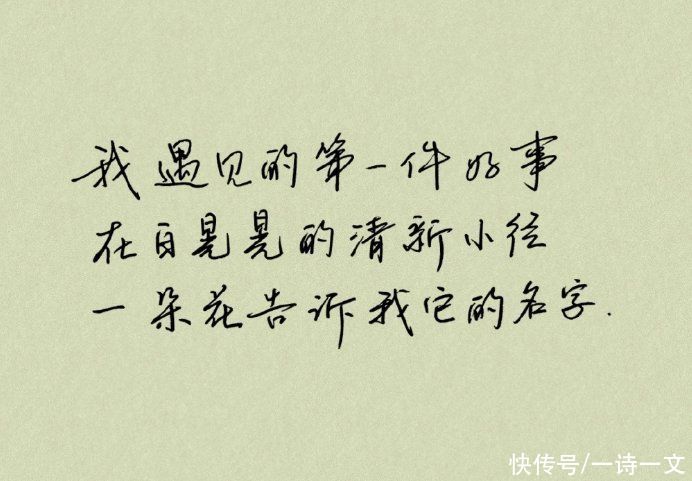 我遇见的第一件好事
在白晃晃的清新小径
一朵花告诉我它的名字.
快传号/一诗一文